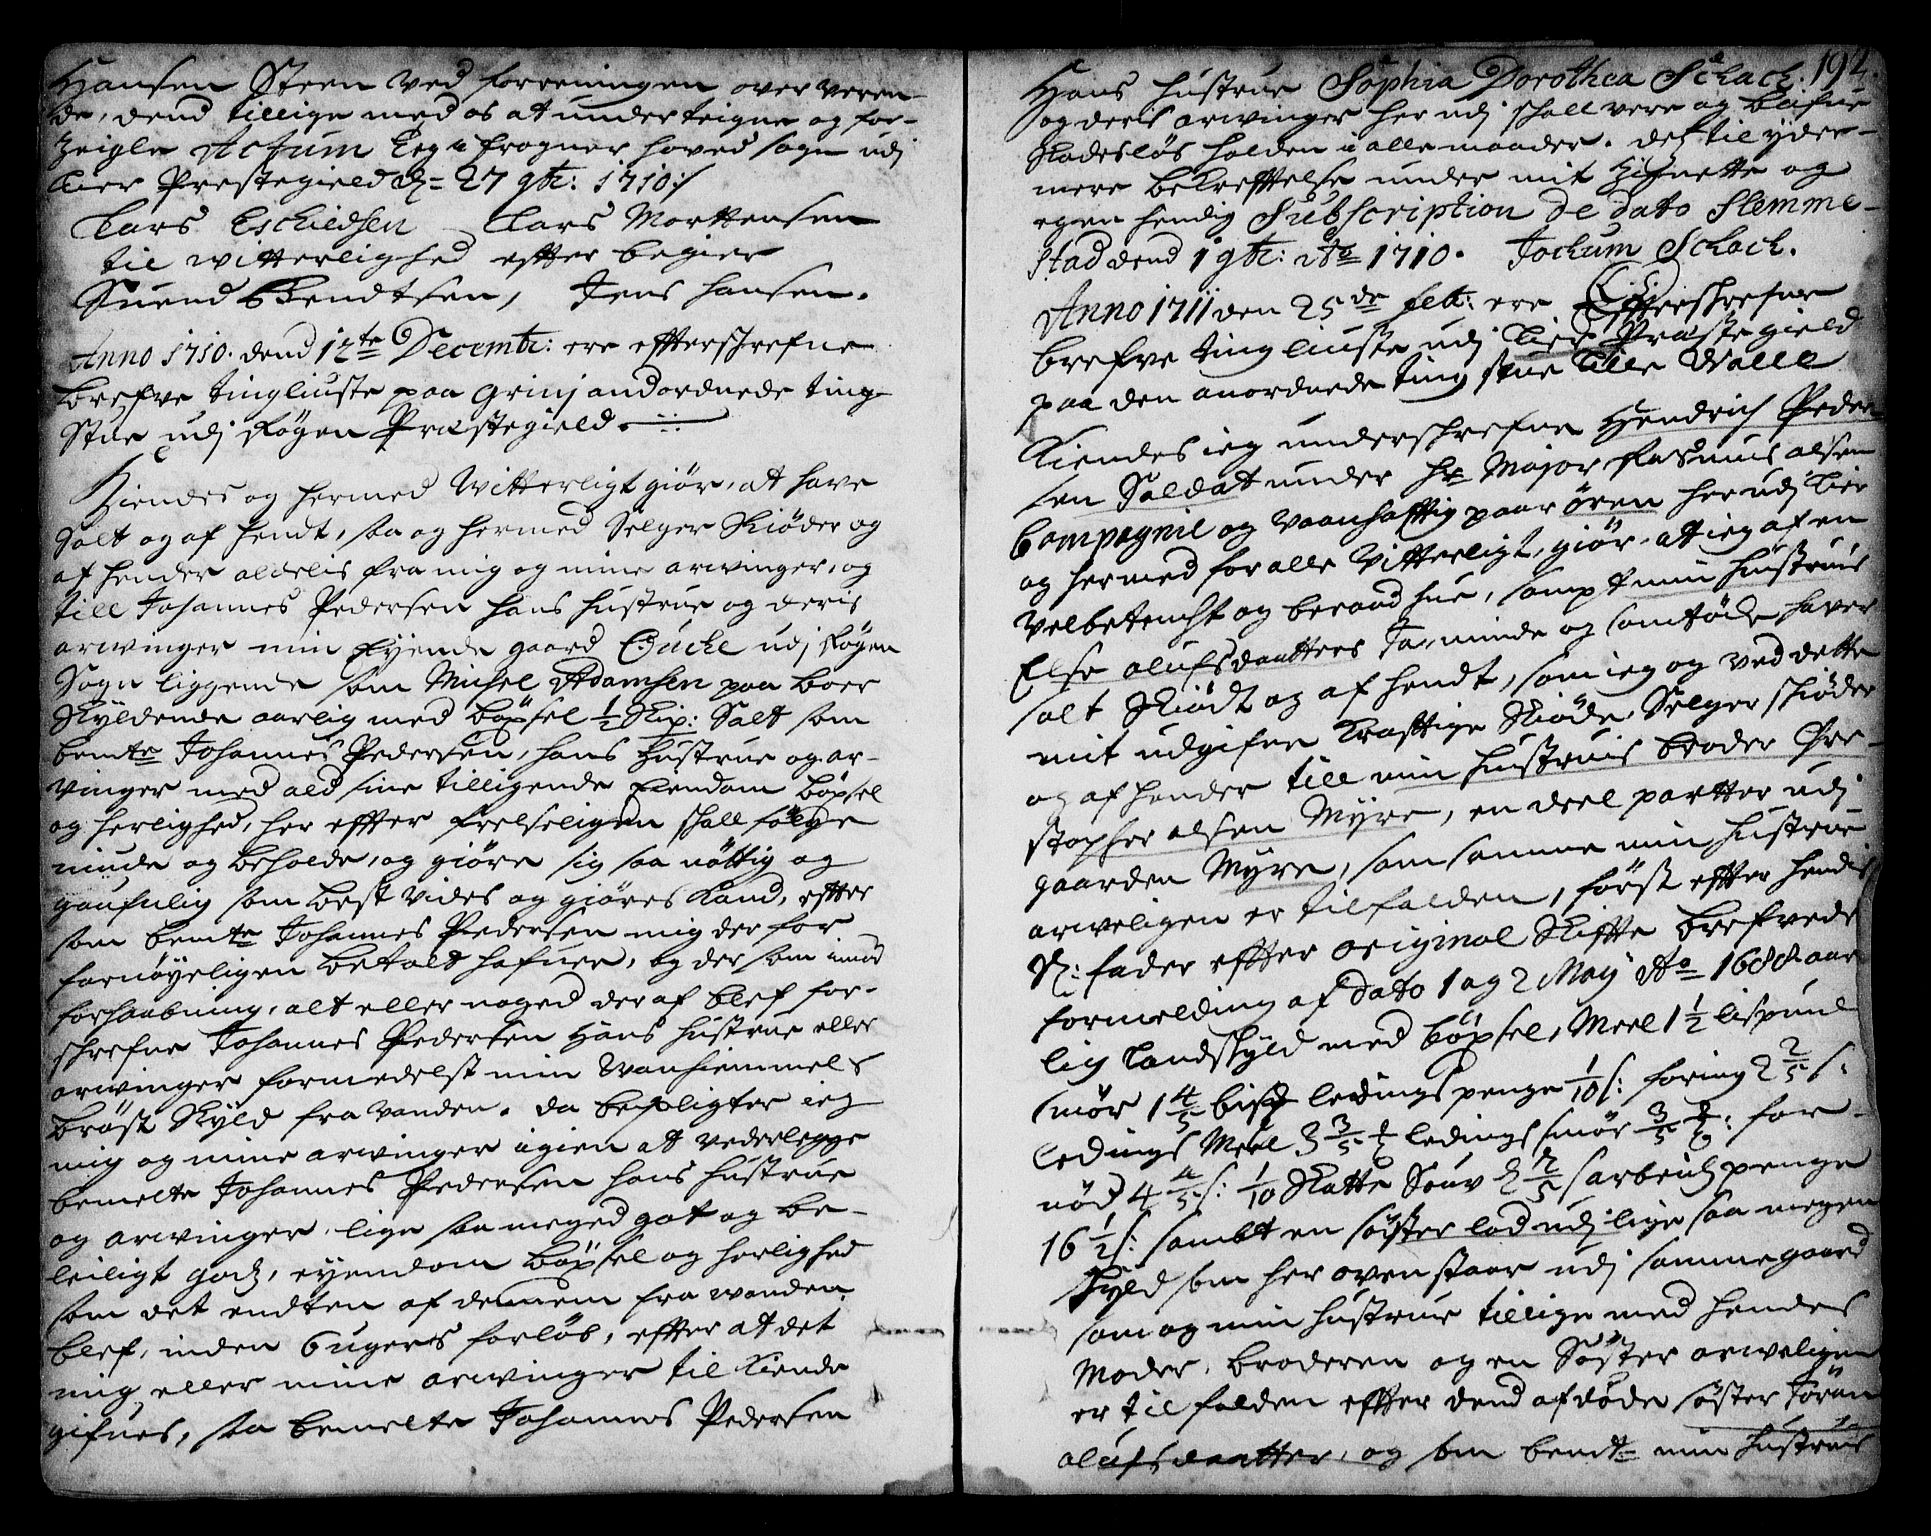 Hansen Steen ved forretningen over veren-
de, dend tillige med os at underteigne og for-
Zeigle Actum Eeg i frogner hoved sogn udj
Lier Prestegield d: 27 9br: 1710:/
Lars Eschildsen Lars Morttensen
til witterlighed effter begier
Suend Bendtsen, Jens Hansen.
Anno 1710. dend 12te Decembr: ere effterschrefne
brefve tingliuste paa Grinj andordnede ting-
stue udj Røgen Præstegield.
Kiendes og hermed Witterligt giør, at have
Solt og af hendt, saa og hermed Selger Skiøder og
af hender aldelis fra mig og mine arwinger, og
till Johannes Pedersen Hans Hustrue og deris
arwinger min Eyende gaard Gucke udj Røgen
Sogn liggende som Michel Adamsen paa boer
Skyldende aarlig med böxsel 1/2 Skip: Salt som
bemte Johannes Pedersen, hans Hustrue og ar-
vinger med ald sine tilligende Eiendom böxsel
og herlighed, her effter frelseligen schall følge
niude og beholde, og giøre sig saa nöttig og
gaufnlig som best vides og giøres kand, effter
som bemte Johannes Pedersen mig der for
fornøyeligen betalt hafuer, og der som imod
forhaabning, alt eller noged der af blef for-
schrefne Johannes Pedersen Hans Hustrue eller
arwinger formedelst min Vanhiemmels
brøst Skyld fra vanden. da bepligter ieg
mig og mine arwinger igien at vederlegge
bemelte Johannes Pedersen hans Hustrue
og arwinger lige saa meged got og be-
leiligt godz, eyendom böxsel og herlighed
som det endten af dennem fra wonden
blef, inden 6 ugers forløb, effter at det
mig eller mine arwinger til kiende
gifues, saa bemelte Johannes Pedersen
192.
Hans Hustrue Sophia Dorothea Schach.
og deris arwinger her udj schall vere og blifue
skadesløs holden i alle maader. Des til yder-
mere bekrefftelse under mit Zignette og
egen hendig Subscription de dato Slemme-
stad dend 1 9br: Ao 1710. Jochum Schach.
Anno 1711 den 25de febr: ere Effterschrefne
brefve tingliuste udj Lier Præstegield
paa den anordnede ting stue Lille Walle
Kiendes ieg underschrefne Hendrich Peder-
sen Saldat under Hr Major Rasmus olsen
Compagnie og vaanhafftig paa ören her udj Lier
og hermed for alle Vitterligt, giør at ieg af en
velbetencht og beraad hue, sampt min hustrues
Else olufsdaatters Ja, minde og samtöche haver
solt Skiödt og af hendt, som ieg og ved dette
mit udgifne krafftige Skiöde Selger skiöder
og af hender till min hustrues broder Chre-
stopher olsen Myre, en deel partter udj
gaarden Myre, som samme min hustrue
arweligen er tilfalden, først effter hendis
Sl: fader effter original Skiffte brefvedes
formelding af dato 1 og 2 May Ao 1688. aar-
lig Landskyld med böxsel, Meel 1 1/2 lispund
smör 1 4/5 bisd ledings penge 1/10 s: foring 2 2/5 s:
ledings Meel 3 3/5 ledings smör 3/5 : for-
nöd 4 4/5 s: 1/10 Skatte Souv 2 2/5 s arbeidz penge
16 1/2 s: sambt en söster lod udj lige saa megen
skyld som her oven staar udj samme gaard
som og min hustrue tillige med hendes
Moder, broderen og en Söster arweligen
er til falden effter dend afdöde söster Jöran
olufsdaatter, og som bemdte min hustrues